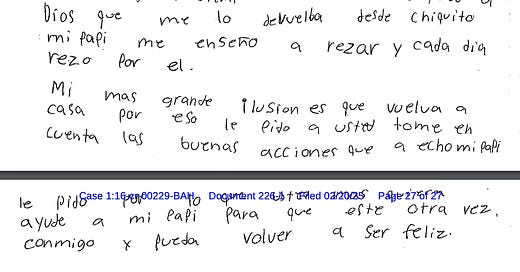 Dios que me lo devuelba desde chiquito
mi papi me enseño a rezar y cada dia
rezo por el.
Mi mas grande ilusion es que vuelva a
casa por eso le pido a usted tome en
cuenta las buenas acciones que a echo mi papi
Case 1:16-cr-00229-BAH Document 226-1 Filed 02/20/25 Page 27 of 27
le pido por lo que
ayude a mi papi para que este otra vez.
conmigo x pueda volver a ser feliz.